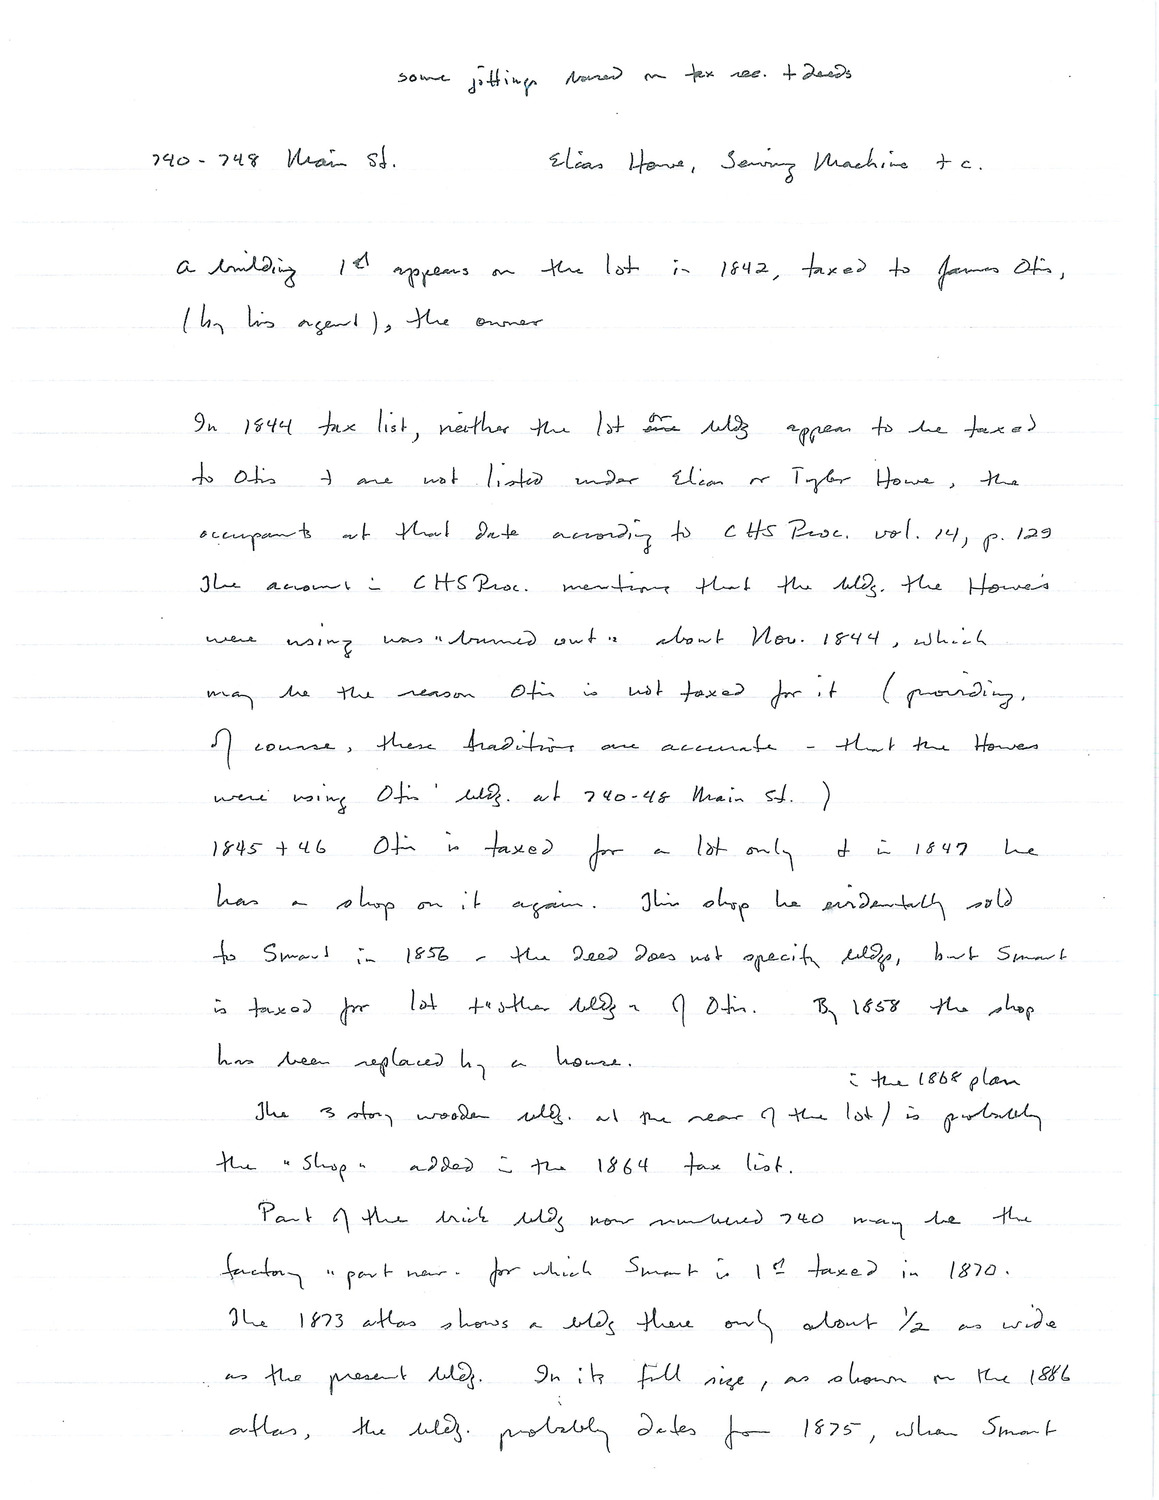 some jottings based on tax rec. + deeds
740-748 Main St. Elias Howe, Sewing Machine + c.
A building 1st appears on the lot in 1842, taxed to James Otis,
(by his agent), the owner
In 1844 tax list, neither the lot or bldg appear to be taxed
to Otis + are not listed under Elias or Tyler Howe, the
occupants at that date according to CHS Proc. vol. 14, p. 129
The account in CHS Proc. mentions that the bldg. the Howe's
were using was "burned out" about Nov. 1844, which
may be the reason Otis is not taxed for it (providing,
of course, these traditions are accurate - that the Howes
were using Otis' bldg. at 740-48 Main St.)
1845 + 46 Otis is taxed for a lot only + in 1847 he
has a shop on it again. This shop he evidentally sold
to Smart in 1856 - the deed does not specify bldgs, but Smart
is taxed for lot + "other bldg" of Otis. By 1858 the shop
has been replaced by a house.
in the 1868 plan
The 3 story wooden bldg. at the rear of the lot / is probably
the "shop" added in the 1864 tax list.
Part of the brick bldg now numbered 740 may be the
factory "part new" for which Smart is 1st taxed in 1870.
The 1873 atlas shows a bldg there only about 1/2 as wide
as the present bldg. In its full size, as shown on the 1886
atlas, the bldg. probably dates from 1875, when Smart